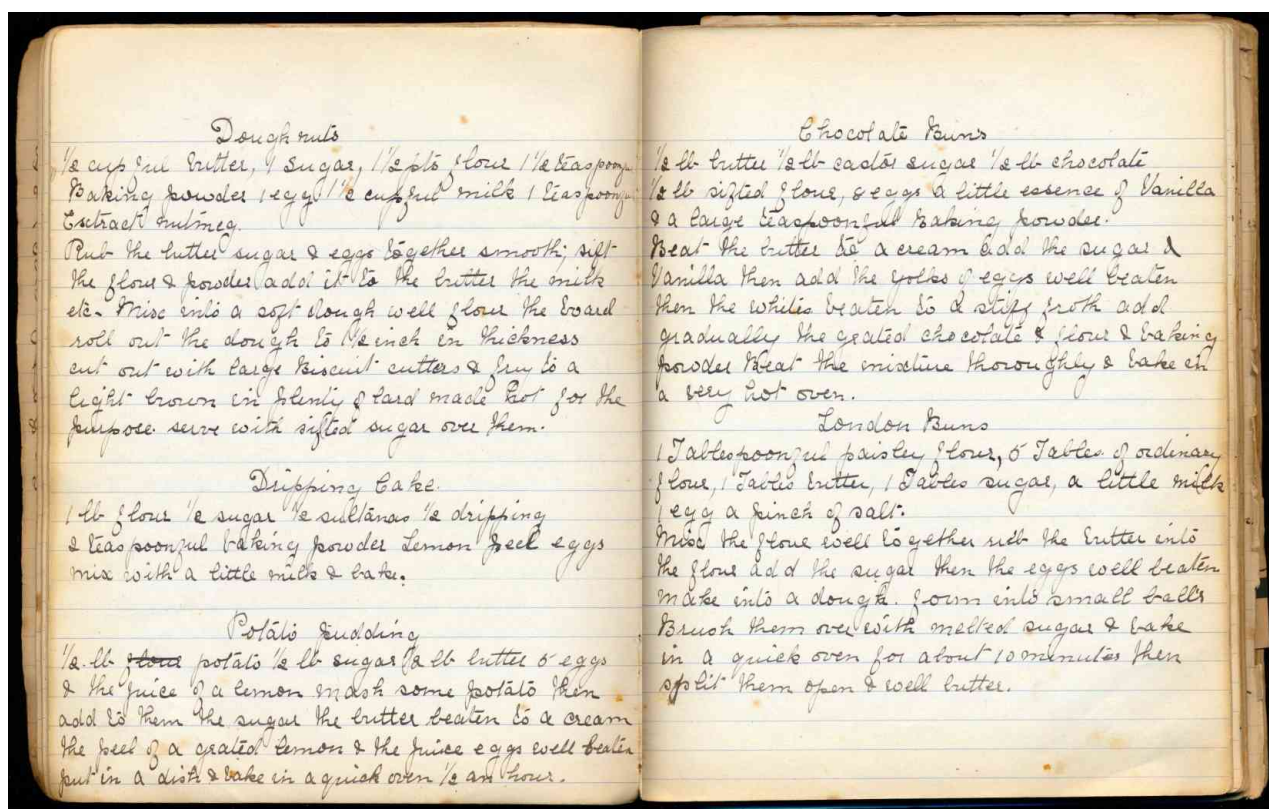 Doughnuts
½ cupful butter, 1 sugar, 1½ pts flour 1½ teaspoonful
Baking powder 1 egg 1½ cupful milk 1 teaspoonful
Extract nutmeg.
Rub the butter sugar & eggs together smooth; sift
the flour & powder add it to the butter the milk
etc. Mix into a soft dough well flour the board
roll out the dough to ½ inch in thickness
cut out with large Biscuit cutters & fry to a
light brown in plenty of lard made hot for the
purpose. serve with sifted sugar over them.
Dripping Cake.
1 lb flour ½ sugar ½ sultanas ½ dripping
2 teaspoonful baking powder Lemon peel eggs
mix with a little milk & bake.
Potato Pudding
½ lb flour potato ½ lb sugar ½ lb butter 5 eggs
& the juice of a lemon mash some potato then
add to them the sugar the butter beaten to a cream
the peel of a grated lemon & the juice eggs well beaten
put in a dish & bake in a quick oven ½ an hour.
Chocolate Buns
½ lb butter ½ lb castor sugar ½ lb chocolate
½ lb sifted flour, 8 eggs a little essence of Vanilla
& a large teaspoonful Baking powder.
Beat the butter to a cream add the sugar &
Vanilla then add the yolks of eggs well beaten
then the whites beaten to a stiff froth add
gradually the grated chocolate & flour & baking
powder Beat the mixture thoroughly & bake in
a very hot oven.
London Buns
1 Tablespoonful paisley flour, 5 Tables. of ordinary
flour, 1 Tables butter, 1 Tables sugar, a little milk
1 egg a pinch of salt.
Mix the flour well together rub the butter into
the flour add the sugar then the eggs well beaten
make into a dough. form into small balls
Brush them over with melted sugar & bake
in a quick oven for about 10 minutes then
split them open & well butter.